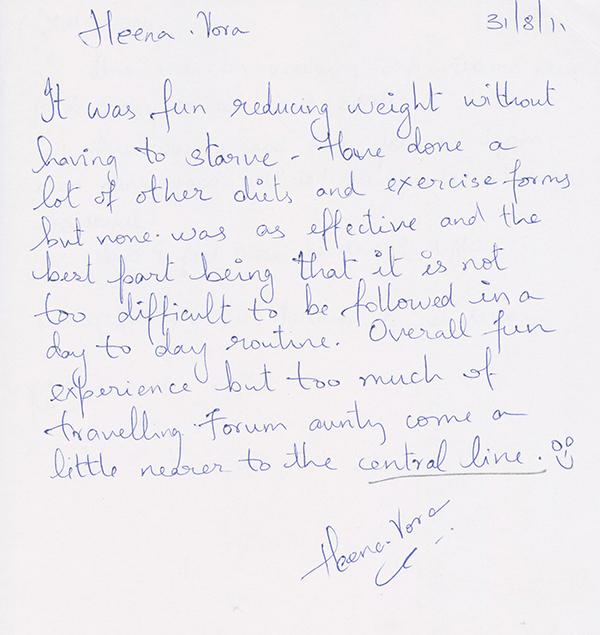 Heena . Vora 31/8/11
It was fun reducing weight without
having to starve - Have done a
lot of other diets and exercise forms
but none was as effective and the
best part being that it is not
too difficult to be followed in a
day to day routine. Overall fun
experience but too much of
travelling. Forum aunty come a
little nearer to the central line.
Heena.Vora